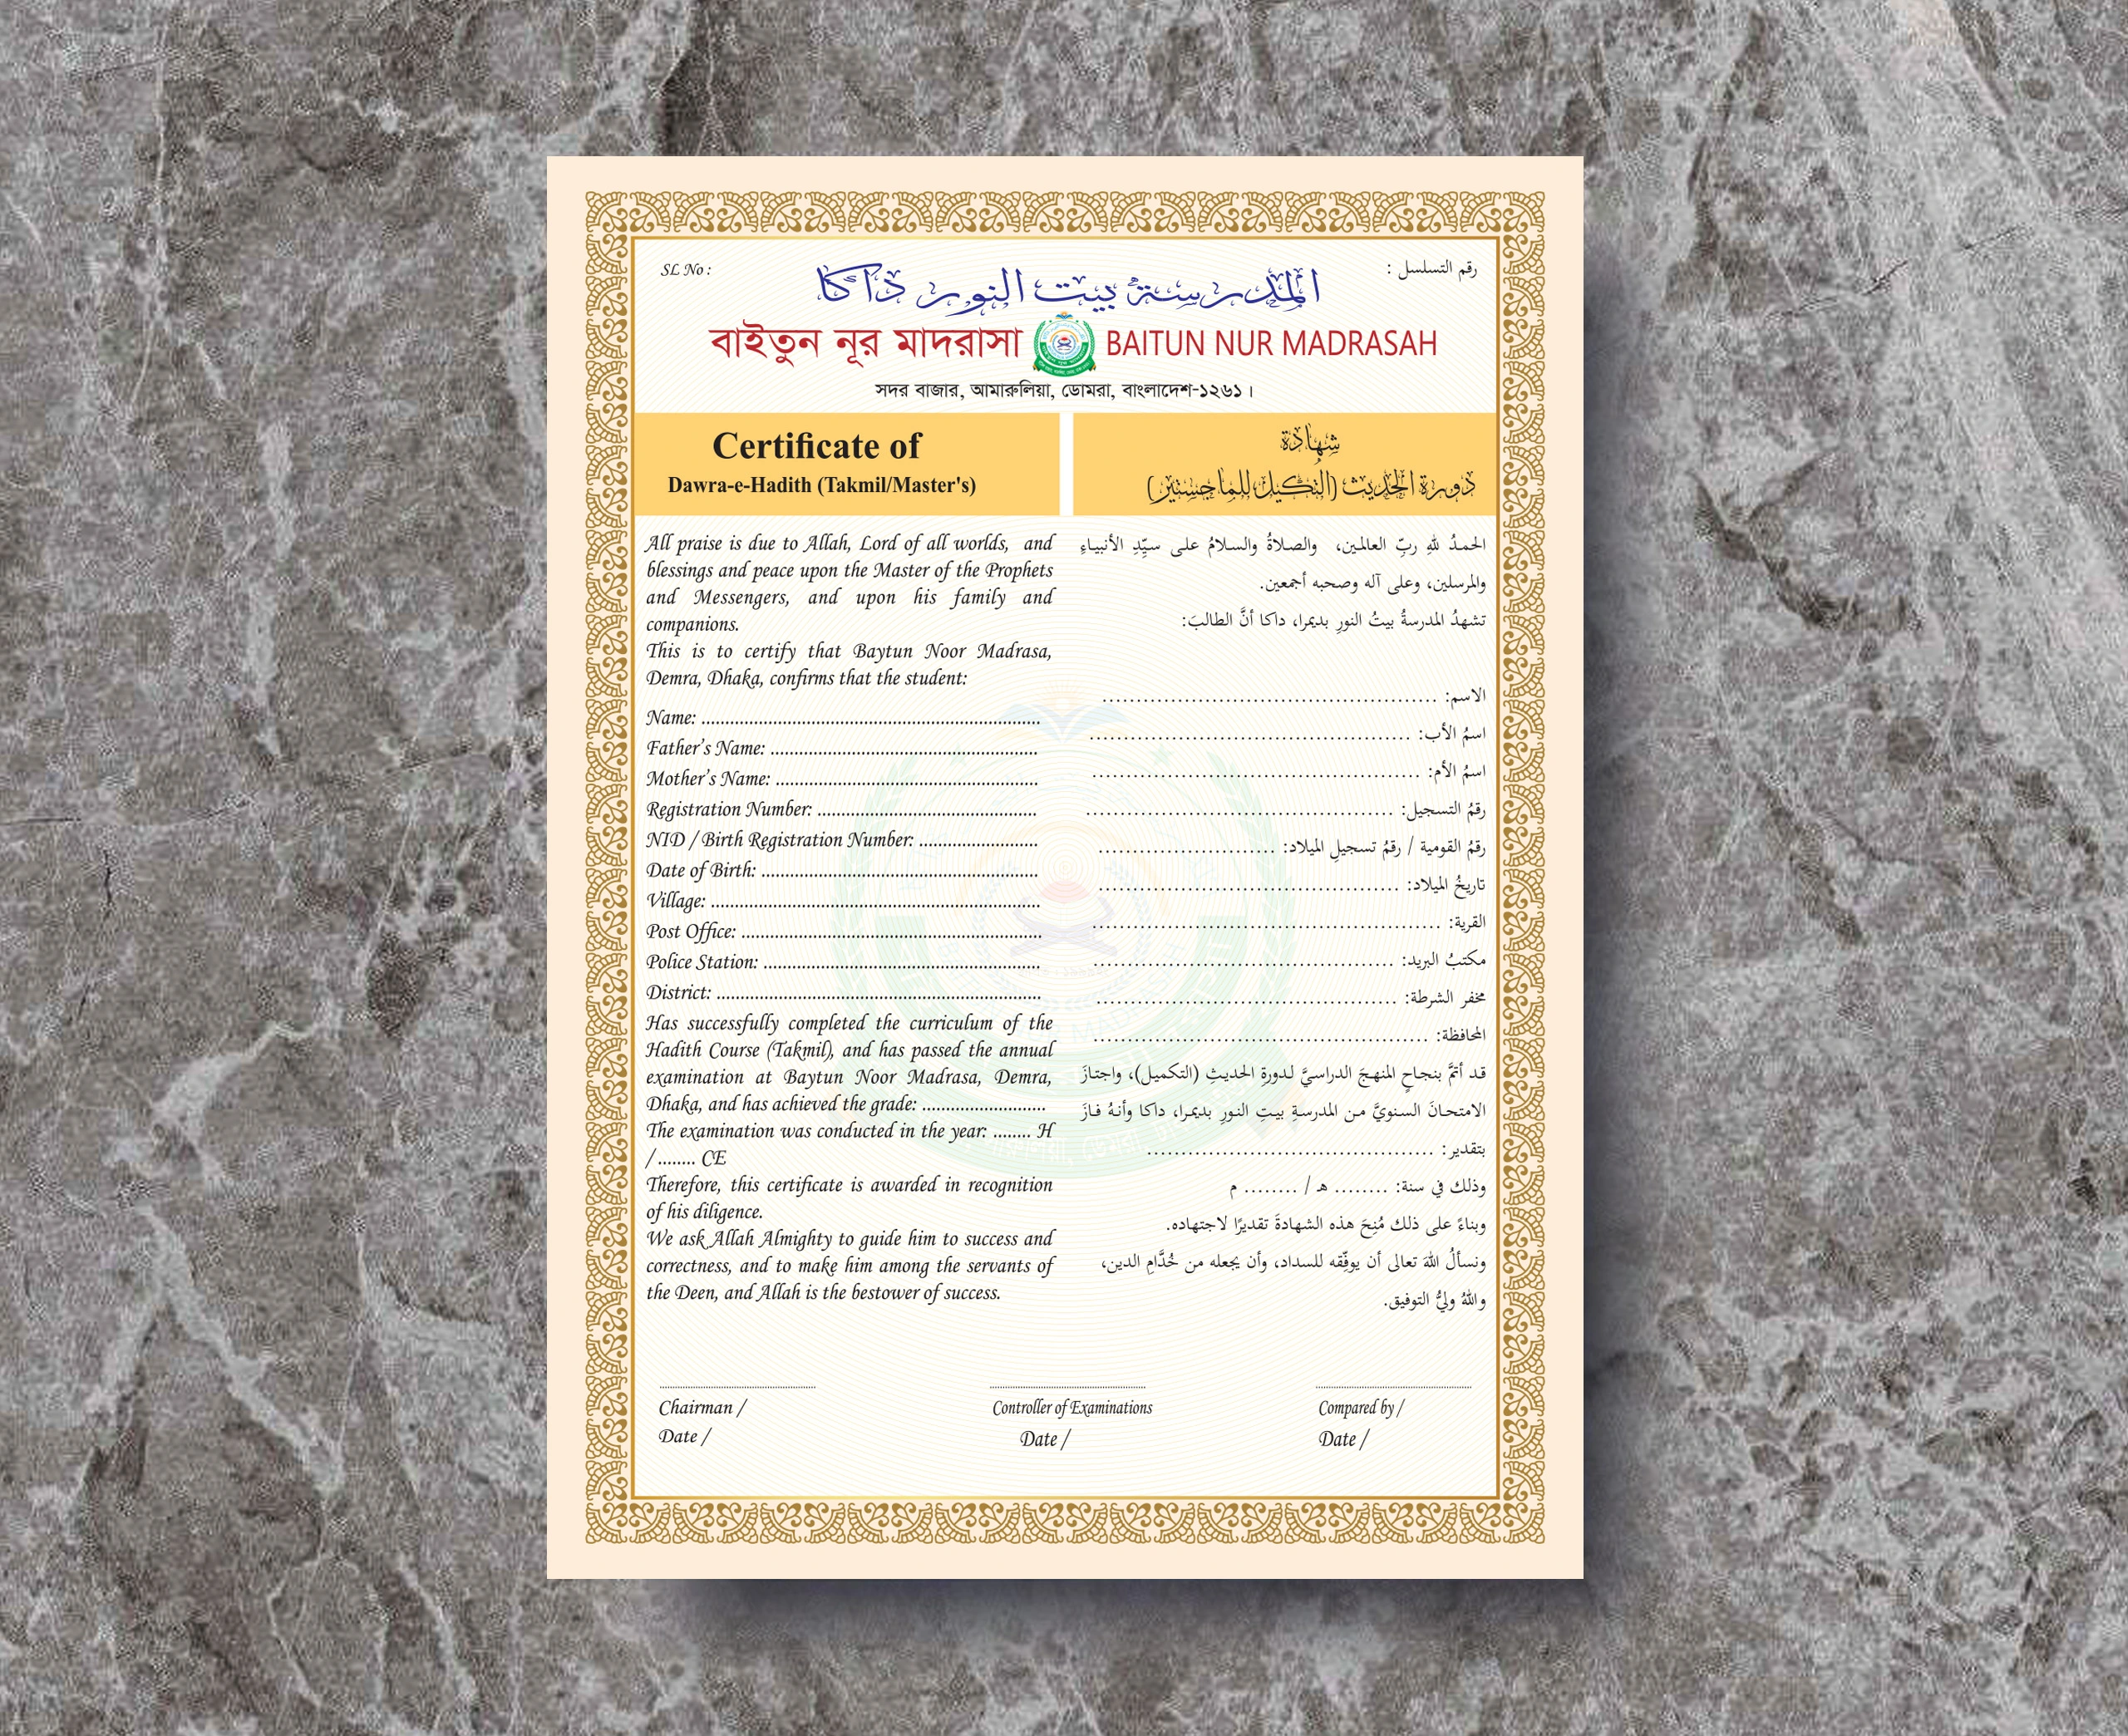 SL No :
رقم التسلسل :
المدرسة بيت النور داكا
বাইতুন নূর মাদরাসা BAITUN NUR MADRASAH
সদর বাজার, আমারুলিয়া, ডোমরা, বাংলাদেশ-১২৬১।
Certificate of
Dawra-e-Hadith (Takmil/Master's)
شهادة
دورة الحديث (التكميل للماجستير)
All praise is due to Allah, Lord of all worlds, and
blessings and peace upon the Master of the Prophets
and Messengers, and upon his family and
companions.
This is to certify that Baytun Noor Madrasa,
Demra, Dhaka, confirms that the student:
Name: ........................................................................
Father's Name: .........................................................
Mother's Name: ........................................................
Registration Number: ...............................................
NID / Birth Registration Number: .........................
Date of Birth: ...........................................................
Village: ......................................................................
Post Office: ................................................................
Police Station: ...........................................................
District: .....................................................................
Has successfully completed the curriculum of the
Hadith Course (Takmil), and has passed the annual
examination at Baytun Noor Madrasa, Demra,
Dhaka, and has achieved the grade: ..........................
The examination was conducted in the year: ........ H
/ ........ CE
Therefore, this certificate is awarded in recognition
of his diligence.
We ask Allah Almighty to guide him to success and
correctness, and to make him among the servants of
the Deen, and Allah is the bestower of success.
الحمدُ للهِ ربّ العالمين، والصلاةُ والسلامُ على سيّدِ الأنبياءِ
والمرسلين، وعلى آله وصحبه أجمعين.
تشهدُ المدرسةُ بيتُ النورِ بديمرا، داكا أنَّ الطالبَ:
الاسم: .................................................
اسمُ الأب: ...............................................
اسمُ الأم: ................................................
رقمُ التسجيل: .............................................
رقمُ القومية / رقمُ تسجيلِ الميلاد: ..........................
تاريخُ الميلاد: ............................................
القرية: ...................................................
مكتبُ البريد: ............................................
مخفر الشرطة: ............................................
المحافظة: .................................................
قد أتمَّ بنجاحٍ المنهجَ الدراسيَّ لدورةِ الحديثِ (التكميل)، واجتازَ
الامتحانَ السنويَّ من المدرسةِ بيتِ النورِ بديمرا، داكا وأنهُ فازَ
بتقدير: ..........................................
وذلك في سنة: ........ هـ / ........ م
وبناءً على ذلك مُنِحَ هذه الشهادةَ تقديرًا لاجتهاده.
ونسألُ اللهَ تعالى أن يوفّقه للسداد، وأن يجعله من خُدَّامِ الدين،
واللهُ وليُّ التوفيق.
Chairman /
Date /
Controller of Examinations
Date /
Compared by /
Date /